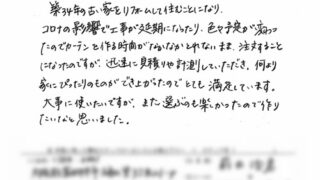 築34年の古い家をリフォームして住むことになり、
コロナの影響で工事が延期になったり、色々予定が変わっ
たのでカーテンを作る時間がなかなかとれないまま、注文すること
になったのですが、迅速に見積りや計測していただき、何より
家にぴったりのものができ上がったのでとても満足しています。
大事に使いたいですが、また選ぶのも楽しかったので作り
たいなと思いました。